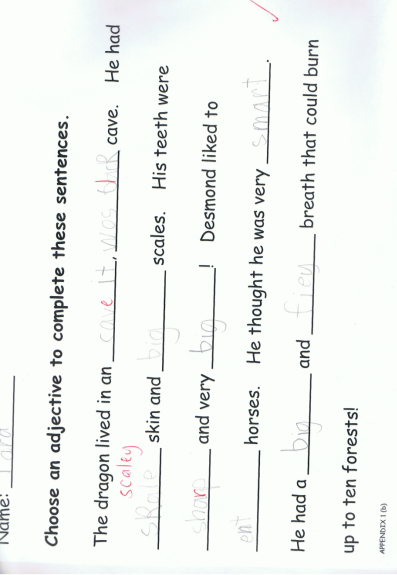 Name: Tara
Choose an adjective to complete these sentences.
The dragon lived in an cave It, was thar cave. He had
scaley
sRale skin and big scales. His teeth were
sharp and very big! Desmond liked to
ent horses. He thought he was very smart.
He had a big and firey breath that could burn
up to ten forests!
APPENDIX 1 (b)